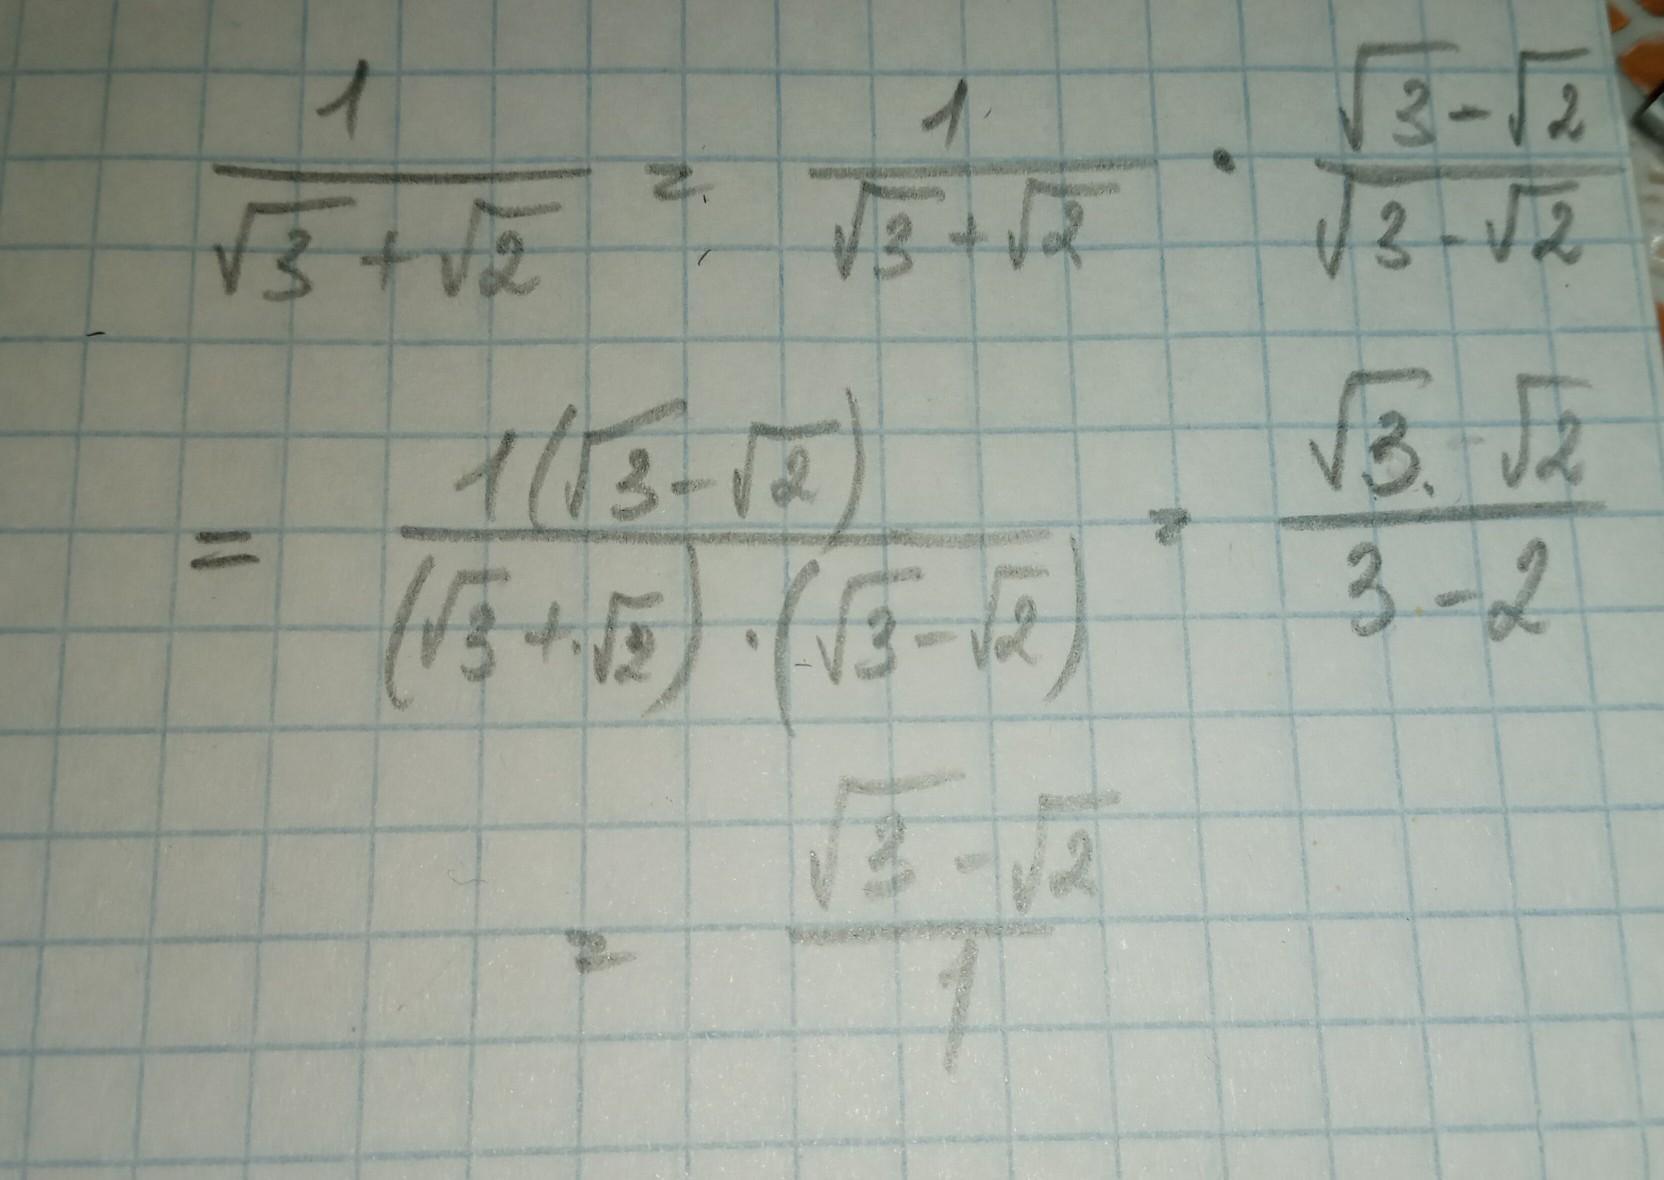 1/(√3+√2) = 1/(√3+√2) · (√3-√2)/(√3-√2)
= 1(√3-√2)/((√3+√2)·(√3-√2)) = (√3-√2)/(3-2)
= (√3-√2)/1